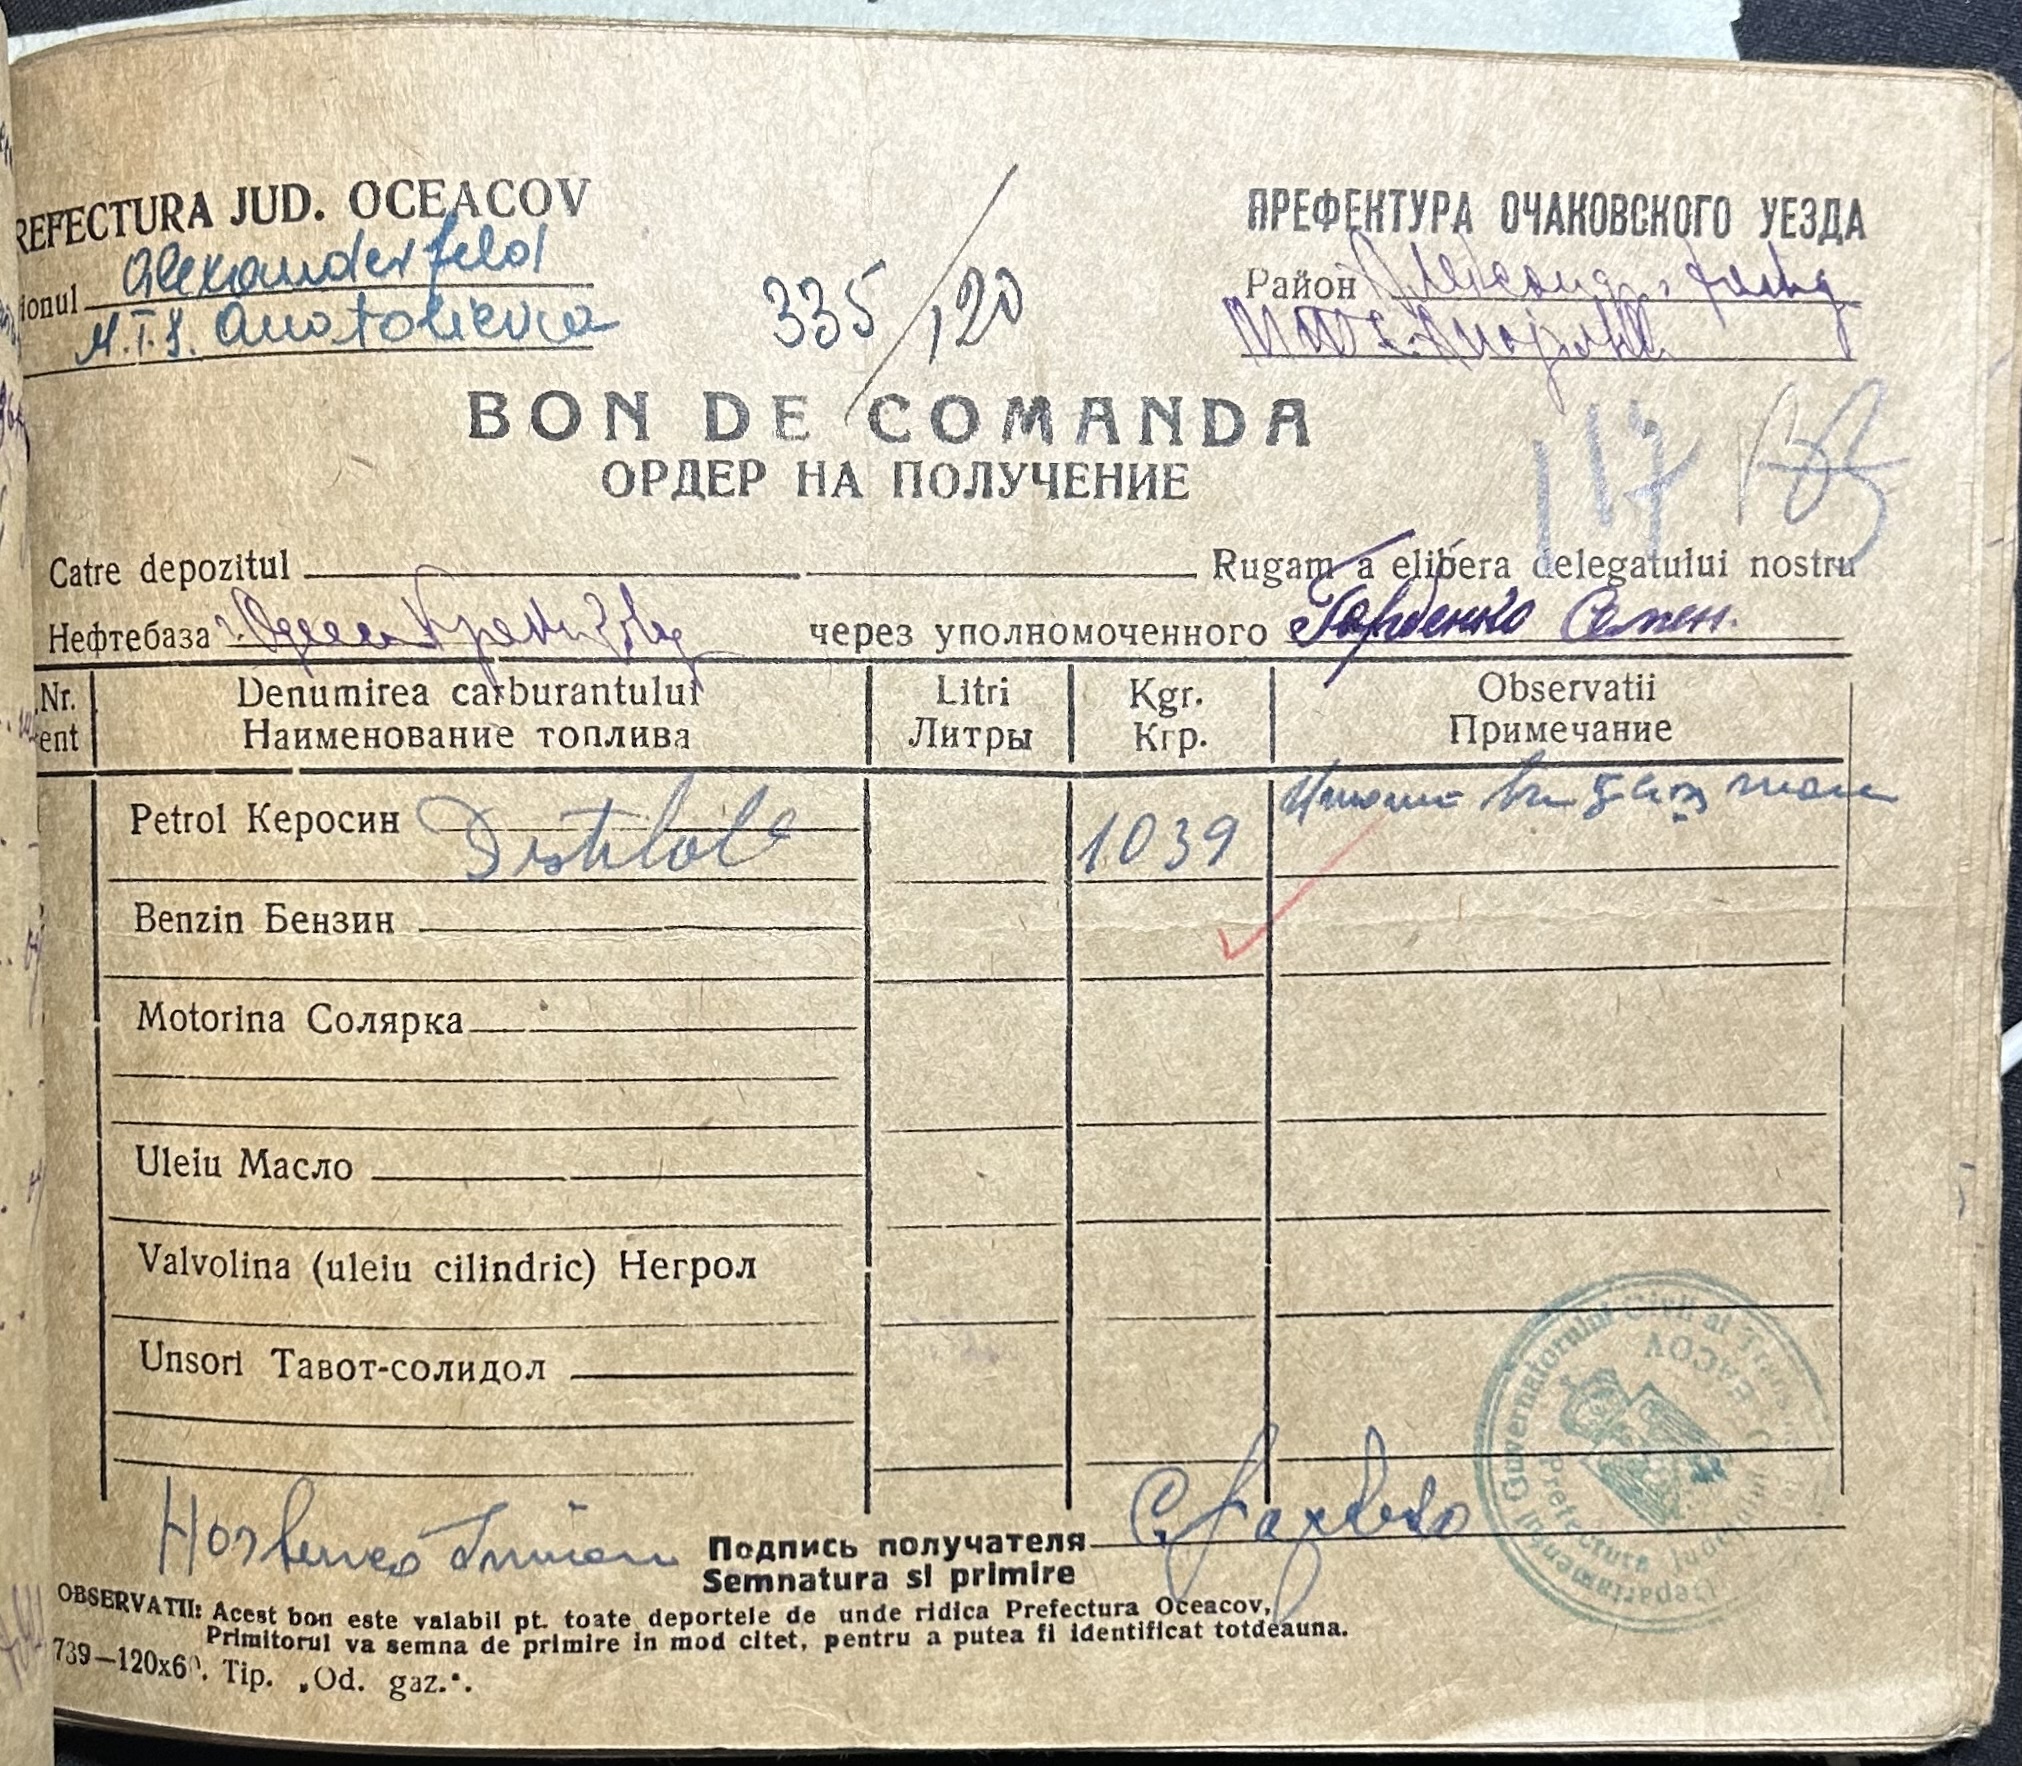 REFECTURA JUD. OCEACOV
ionul Alexanderfeld
M.T.S. Anatolievca
335/120
ПРЕФЕКТУРА ОЧАКОВСКОГО УЕЗДА
Район
BON DE COMANDA
ОРДЕР НА ПОЛУЧЕНИЕ
117
Catre depozitul Rugam a elibera delegatului nostru
Нефтебаза через уполномоченного Горбенко Семен.
Nr. Denumirea carburantului Litri Kgr. Observatii
ent Наименование топлива Литры Кгр. Примечание
Petrol Керосин Distilat 1039
Benzin Бензин
Motorina Солярка
Uleiu Масло
Valvolina (uleiu cilindric) Негрол
Unsori Тавот-солидол
Guvernatorului Civil al Trans
Prefectura Judetului
Подпись получателя
Semnatura si primire
OBSERVATII: Acest bon este valabil pt. toate deportele de unde ridica Prefectura Oceacov,
Primitorul va semna de primire in mod citet, pentru a putea fi identificat totdeauna.
739—120x60. Tip. „Od. gaz.“.